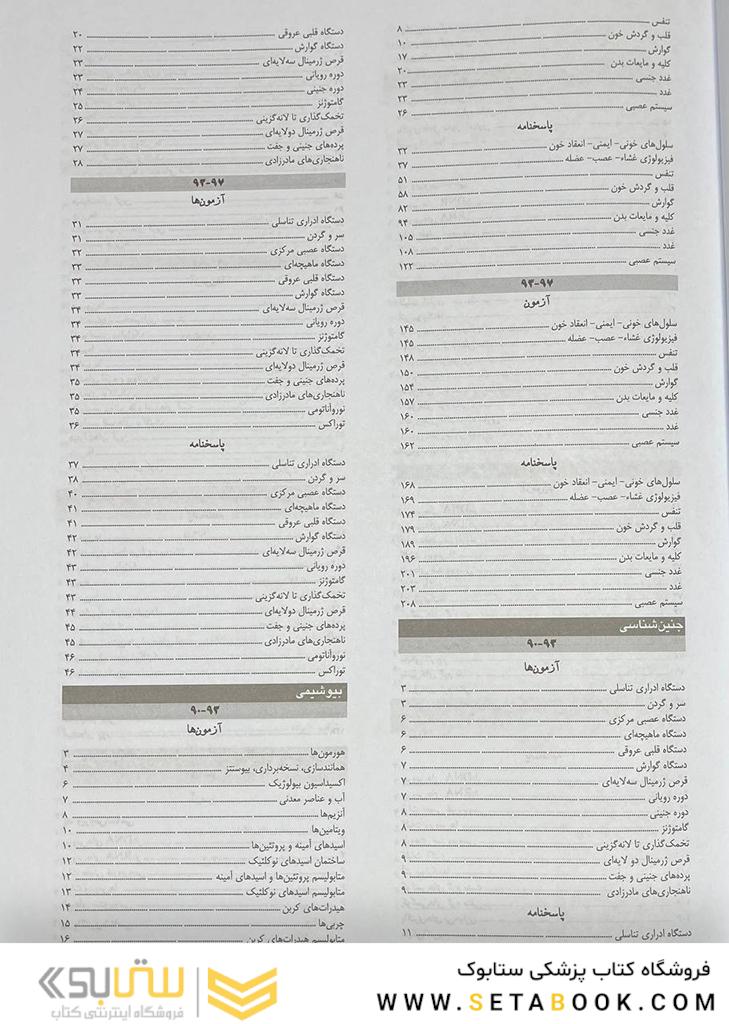 تنفس ۸
قلب و گردش خون ۱۰
گوارش ۱۷
کلیه و مایعات بدن ۲۰
غدد جنسی ۲۳
غدد ۲۳
سیستم عصبی ۲۶
پاسخنامه
سلول‌های خونی- ایمنی- انعقاد خون ۳۲
فیزیولوژی غشاء- عصب- عضله ۳۷
تنفس ۵۱
قلب و گردش خون ۵۸
گوارش ۸۲
کلیه و مایعات بدن ۹۴
غدد جنسی ۱۰۵
غدد ۱۰۸
سیستم عصبی ۱۲۲
۹۳-۹۷
آزمون
سلول‌های خونی- ایمنی- انعقاد خون ۱۴۵
فیزیولوژی غشاء- عصب- عضله ۱۴۵
تنفس ۱۴۸
قلب و گردش خون ۱۵۰
گوارش ۱۵۴
کلیه و مایعات بدن ۱۵۷
غدد جنسی ۱۶۰
غدد ۱۶۰
سیستم عصبی ۱۶۲
پاسخنامه
سلول‌های خونی- ایمنی- انعقاد خون ۱۶۸
فیزیولوژی غشاء- عصب- عضله ۱۶۹
تنفس ۱۷۴
قلب و گردش خون ۱۷۹
گوارش ۱۸۹
کلیه و مایعات بدن ۱۹۶
غدد جنسی ۲۰۱
غدد ۲۰۳
سیستم عصبی ۲۰۸
جنین‌شناسی
۹۰-۹۳
آزمون‌ها
دستگاه ادراری تناسلی ۳
سر و گردن ۳
دستگاه عصبی مرکزی ۶
دستگاه ماهیچه‌ای ۶
دستگاه قلبی عروقی ۶
دستگاه گوارش ۷
قرص ژرمینال سه‌لایه‌ای ۷
دوره رویانی ۷
دوره جنینی ۸
گامتوژنز ۸
تخمک‌گذاری تا لانه‌گزینی ۸
قرص ژرمینال دو لایه‌ای ۹
پرده‌های جنینی و جفت ۹
ناهنجاری‌های مادرزادی ۹
پاسخنامه
دستگاه ادراری تناسلی ۱۱
دستگاه قلبی عروقی ۲۰
دستگاه گوارش ۲۲
قرص ژرمینال سه‌لایه‌ای ۲۳
دوره رویانی ۲۳
دوره جنینی ۲۴
گامتوژنز ۲۵
تخمک‌گذاری تا لانه‌گزینی ۲۶
قرص ژرمینال دولایه‌ای ۲۷
پرده‌های جنینی و جفت ۲۷
ناهنجاری‌های مادرزادی ۲۸
۹۳-۹۷
آزمون‌ها
دستگاه ادراری تناسلی ۳۱
سر و گردن ۳۱
دستگاه عصبی مرکزی ۳۲
دستگاه ماهیچه‌ای ۳۳
دستگاه قلبی عروقی ۳۳
دستگاه گوارش ۳۳
قرص ژرمینال سه‌لایه‌ای ۳۴
دوره رویانی ۳۴
گامتوژنز ۳۴
تخمک‌گذاری تا لانه‌گزینی ۳۴
قرص ژرمینال دولایه‌ای ۳۴
پرده‌های جنینی و جفت ۳۵
ناهنجاری‌های مادرزادی ۳۵
نوروآناتومی ۳۵
توراکس ۳۶
پاسخنامه
دستگاه ادراری تناسلی ۳۷
سر و گردن ۳۸
دستگاه عصبی مرکزی ۴۰
دستگاه ماهیچه‌ای ۴۱
دستگاه قلبی عروقی ۴۱
دستگاه گوارش ۴۲
قرص ژرمینال سه‌لایه‌ای ۴۲
دوره رویانی ۴۳
گامتوژنز ۴۳
تخمک‌گذاری تا لانه‌گزینی ۴۳
قرص ژرمینال دولایه‌ای ۴۴
پرده‌های جنینی و جفت ۴۵
ناهنجاری‌های مادرزادی ۴۵
نوروآناتومی ۴۶
توراکس ۴۶
بیوشیمی
۹۰-۹۳
آزمون‌ها
هورمون‌ها ۳
همانندسازی، نسخه‌برداری، بیوسنتز ۴
اکسیداسیون بیولوژیک ۶
آب و عناصر معدنی ۷
آنزیم‌ها ۸
ویتامین‌ها ۱۰
اسیدهای آمینه و پروتئین‌ها ۱۰
ساختمان اسیدهای نوکلئیک ۱۲
متابولیسم پروتئین‌ها و اسیدهای آمینه ۱۲
متابولیسم اسیدهای نوکلئیک ۱۳
هیدرات‌های کربن ۱۴
چربی‌ها ۱۵
متابولیسم هیدرات‌های کربن ۱۶
فروشگاه کتاب پزشکی ستابوک
WWW.SETABOOK.COM
ستابوک
فروشگاه اینترنتی کتاب